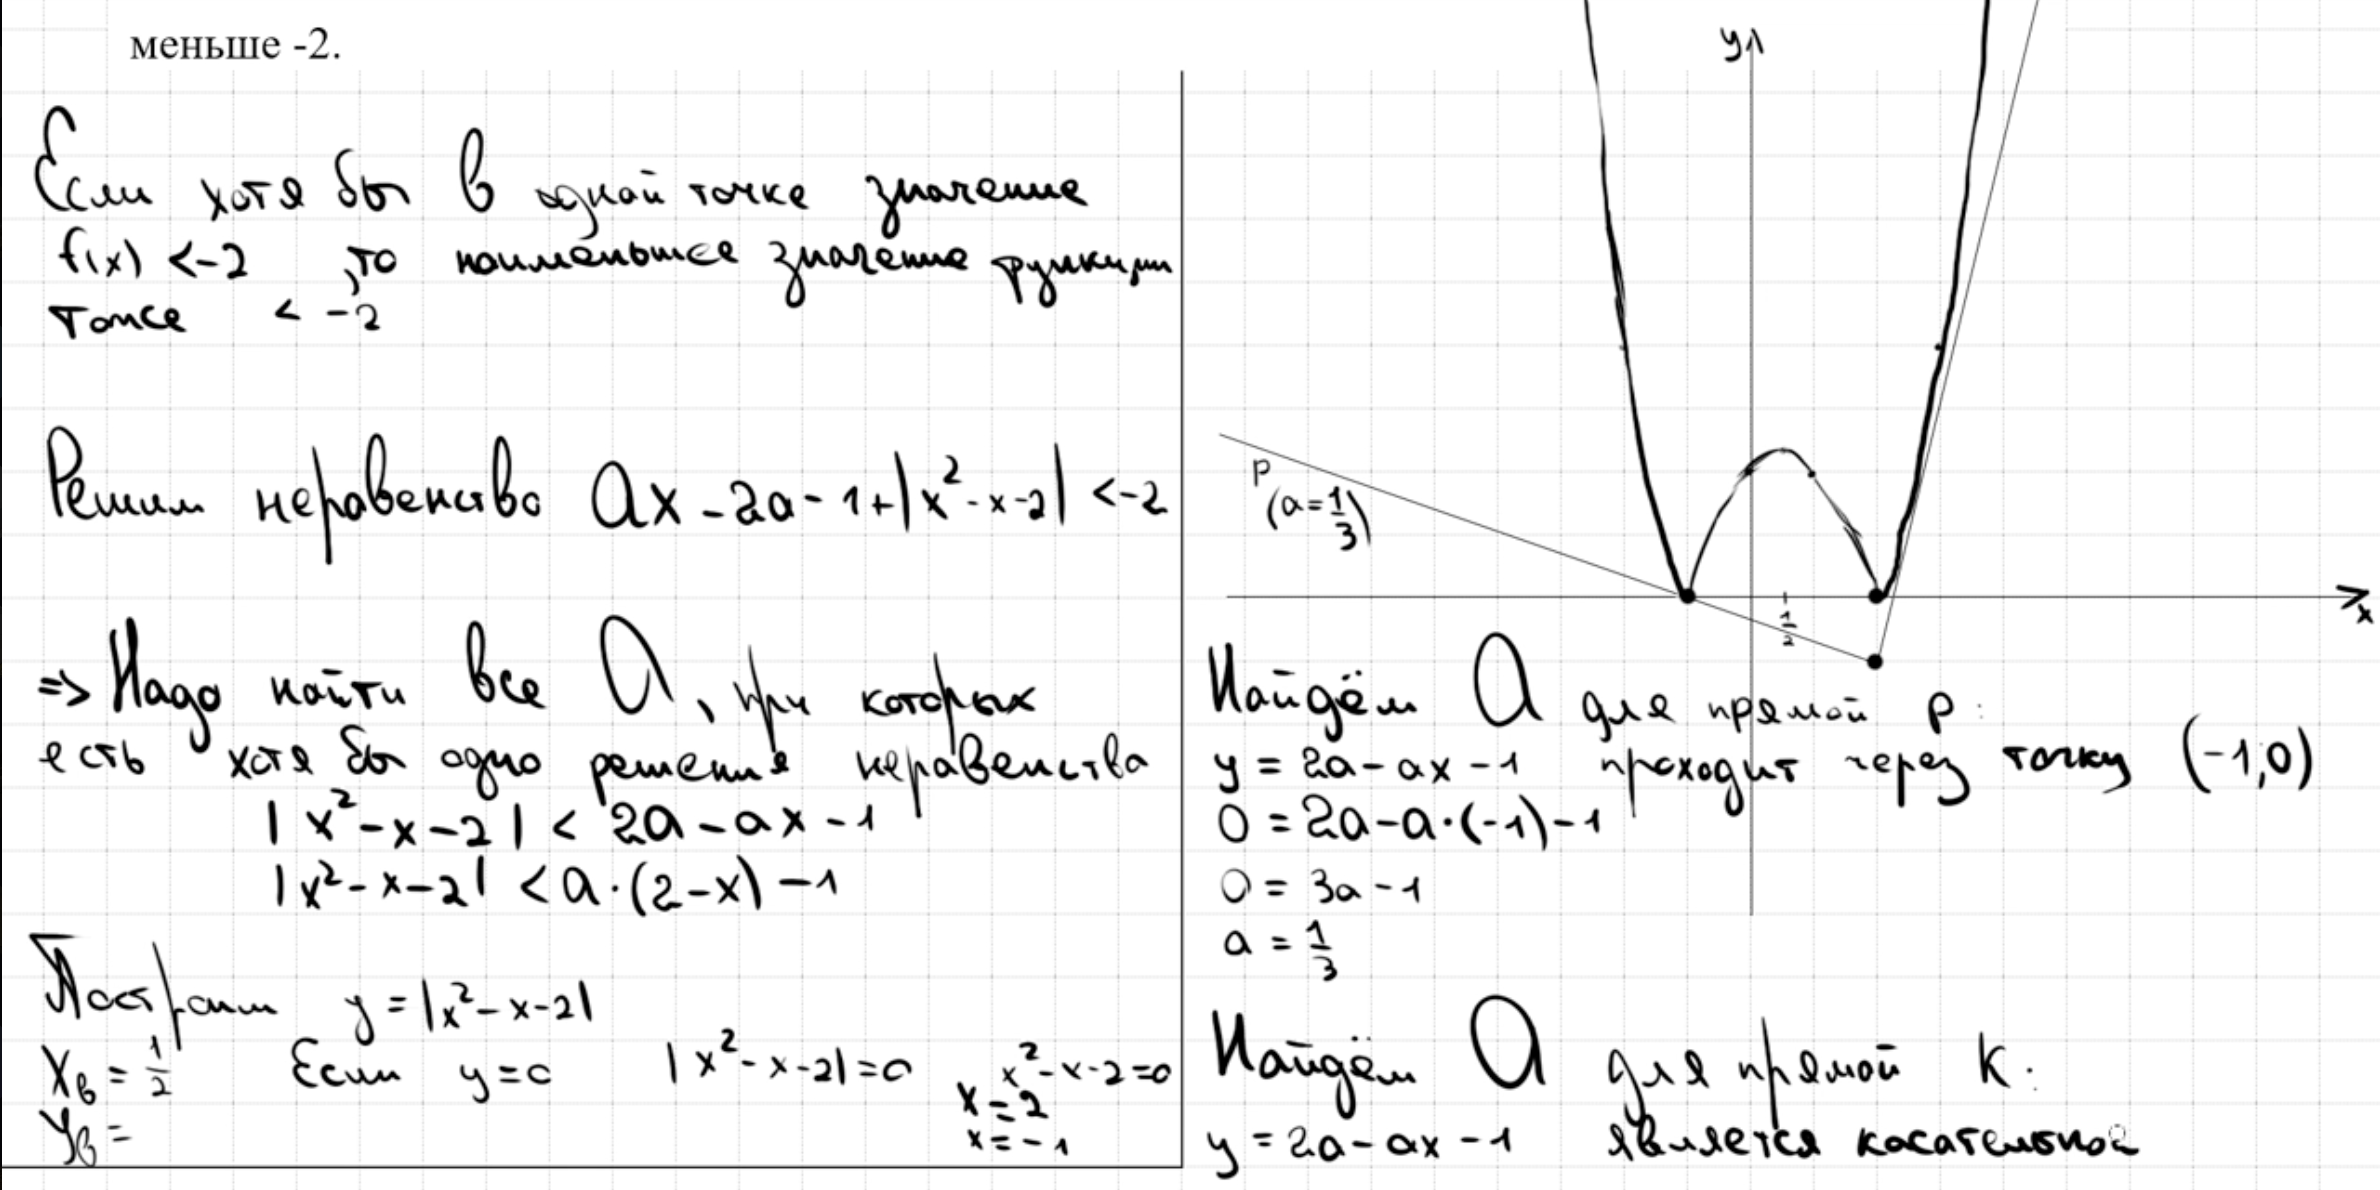 меньше -2.
Если хотя бы в одной точке значение
f(x) < -2 , то наименьшее значение функции
тоже < -2
Решим неравенство ax - 2a - 1 + |x² - x - 2| < -2
=> Надо найти все a, при которых
есть хотя бы одно решение неравенства
|x² - x - 2| < 2a - ax - 1
|x² - x - 2| < a·(2-x) - 1
Построим y = |x² - x - 2|
xв = 1/2 Если y = 0 |x² - x - 2| = 0 x² - x - 2 = 0
x = 2
yв = x = -1
y
P
(a = 1/3)
1/2
x
Найдём a для прямой p:
y = 2a - ax - 1 проходит через точку (-1;0)
0 = 2a - a·(-1) - 1
0 = 3a - 1
a = 1/3
Найдём a для прямой k:
y = 2a - ax - 1 является касательной